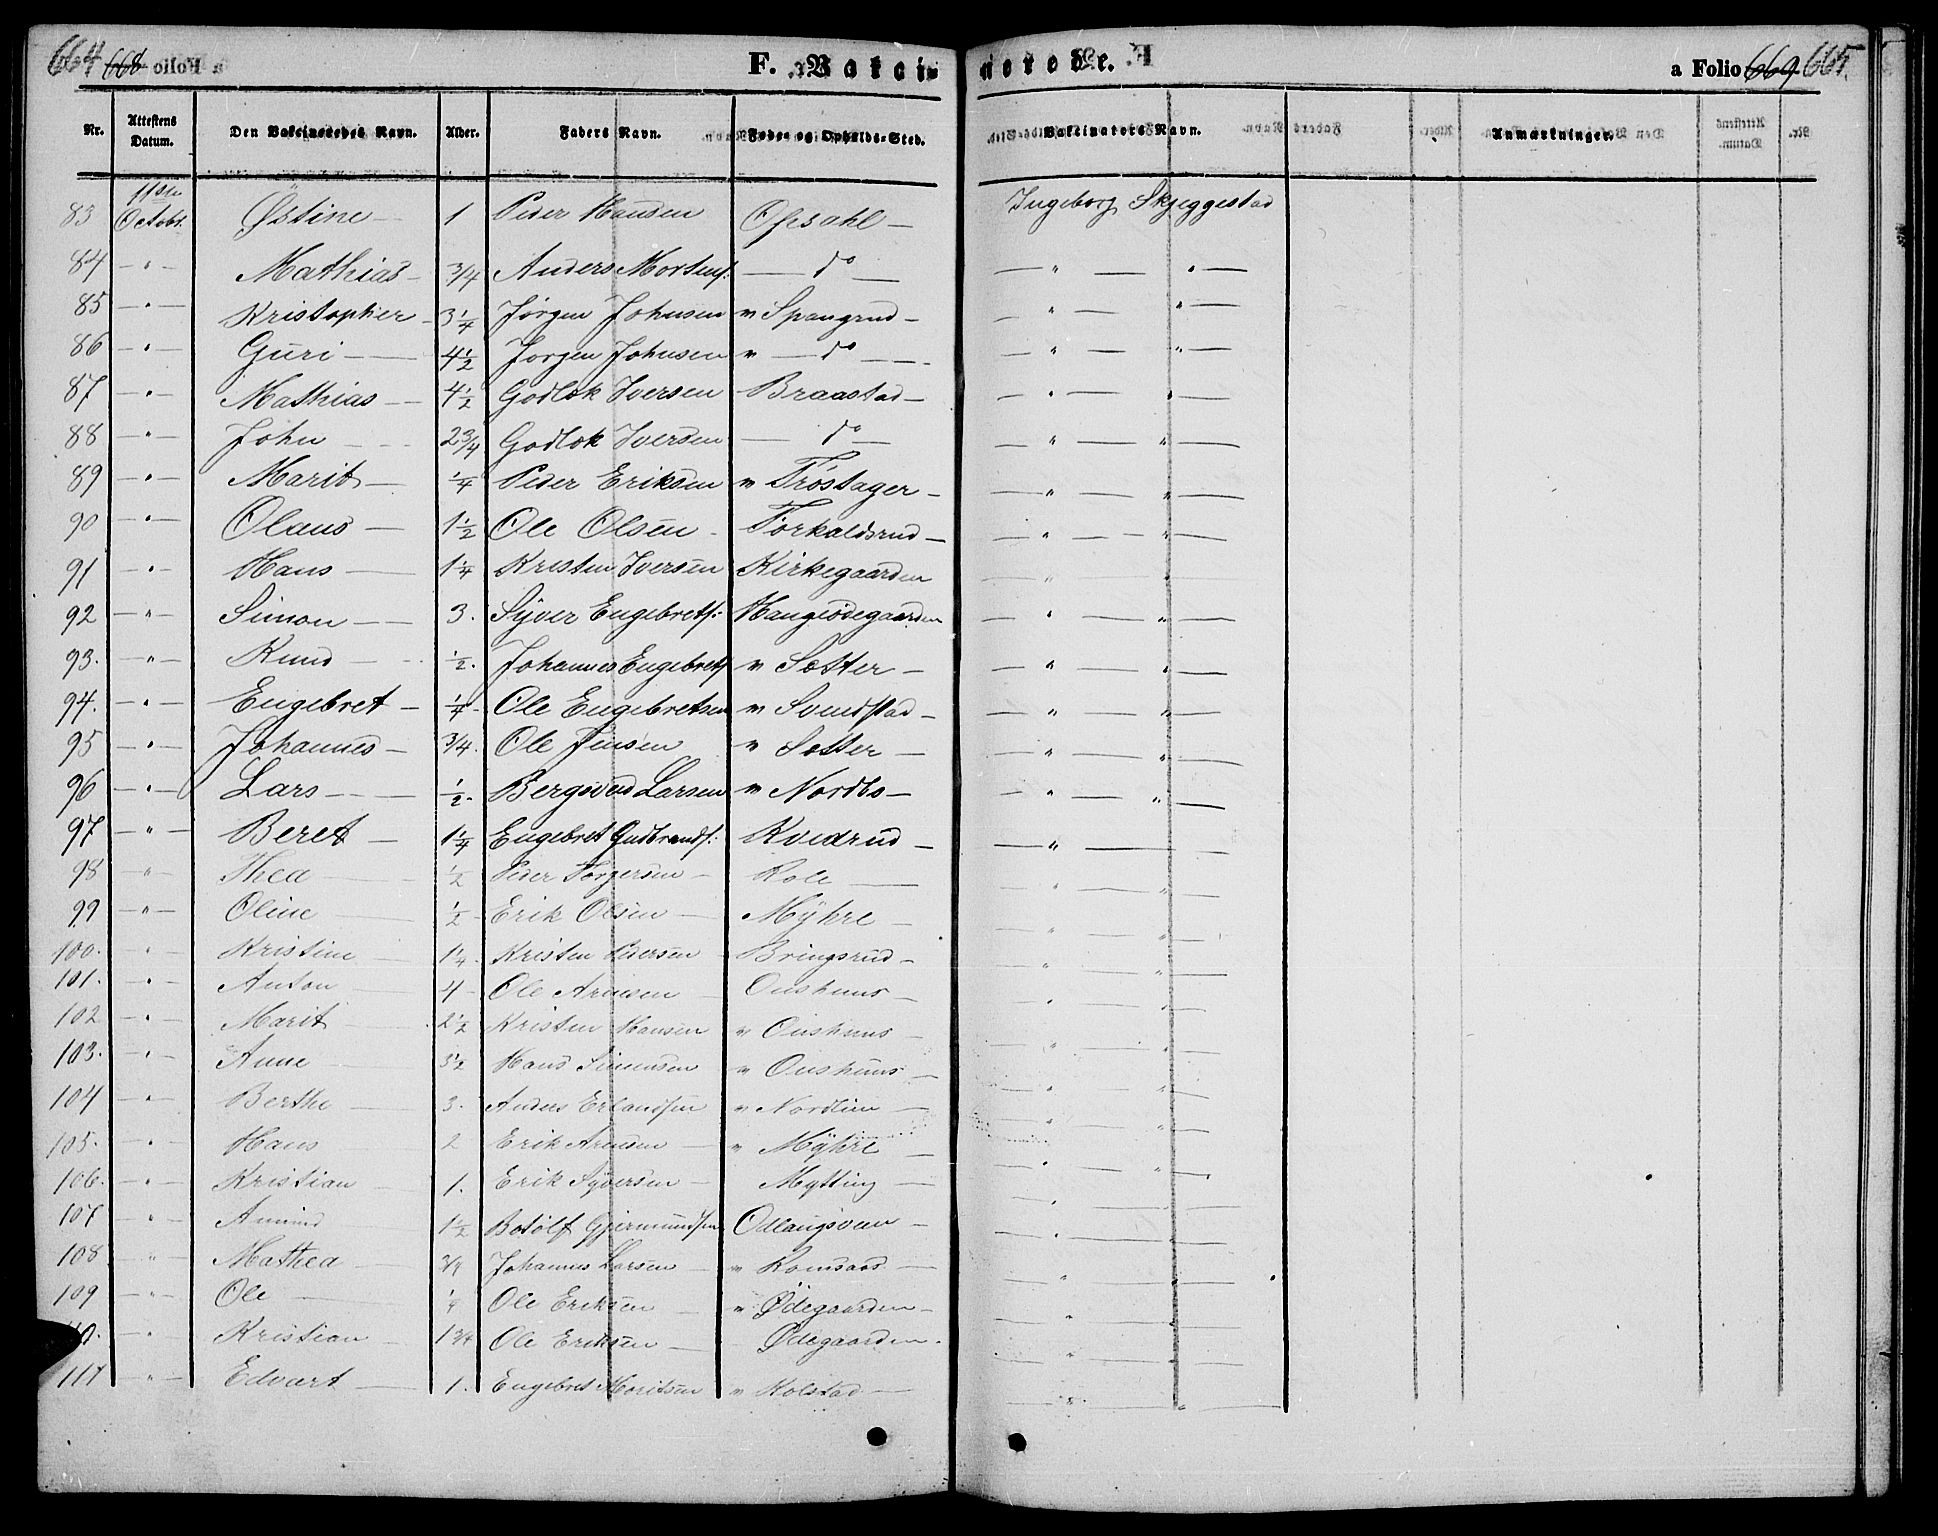 664 668 F. Vakci- nerede. a Folio 669 665.
Nr. Attestens Datum. Den Vakcineredes Navn. Alder. Faders Navn. Føde- og Opholds-Sted. Vakcinatørs Navn. Anmærkninger.
11te
83 Octobr. Østine — 1 Peder Hansen Opsahl — Ingeborg Skjeggestad
84 — " — Mathias — 3/4 Anders Mortens: — do — — " — " —
85 — " — Kristopher — 3 1/4 Jørgen Johnsen " Spangrud — — " — " —
86 — " — Guri — 4 1/2 Jørgen Johnsen " — do — — " — " —
87 — " — Mathias — 4 1/2 Godlok Iversen Braastad — — " — " —
88 — " — John — 2 3/4 Godlok Iversen — do — — " — " —
89 — " — Marit — 1/4 Peder Eriksen " Trøstager — — " — " —
90 — " — Olaus — 1 1/2 Ole Olsen — Torkaldsrud — — " — " —
91 — " — Hans — 1 1/4 Kristen Iversen Kirkegaarden — " — " —
92 — " — Simon — 3. Syver Engebrets: Haugsødegaarden — " — " —
93. — " — Knud — 1/2. Johannes Engebrets " Sætter — — " — " —
94. — " — Engebret — 1/4 Ole Engebretsen " Svendstad — — " — " —
95 — " — Johannes — 3/4. Ole Jensen " Sætter — — " — " —
96 — " — Lars — 1/2. Bergsvend Larsen " Nordbo — — " — " —
97 — " — Beret — 1 1/4 Engebret Gudbrands: Kvedrud — — " —
98 — " — Thea — 1/2 Peder Torgersen — Role — — " — " —
99 — " — Oline — 1/2 Erik Olsen — Myhre — — " — " —
100. " Kristine — 1 1/4 Kristen Pedersen Bringsrud — — " — " —
101. — " — Anton — 4 Ole Arnesen — Onshuus — — " — " —
102 — " — Marit — 2 1/2 Kristen Hansen " Onshuus — — " — " —
103. — " — Anne — 3 1/2 Hans Simensen " Onshuus — — " — " —
104 — " — Berthe — 3. Anders Erlandsen " Nordlien — — " — " —
105. — " — Hans 2 Erik Arnesen — " Myhre — — " — " —
106. — " — Kristian — 1. Erik Syversen — Mytting — — " —
107 — " — Amund 1 1/2 Botolf Gjermundsen Odlaugsveen — — " —
108 — " — Mathea — 3/4 Johannes Larsen — " Romsaas — — " —
109 — " — Ole — 1/4 Ole Eriksen — " Ødegaarden — — " —
— " — Kristian — 1 3/4 Ole Eriksen — Ødegaarden — — " —
111 — " — Edvart — 1. Engebret Moritsen " Kolstad — — " — "